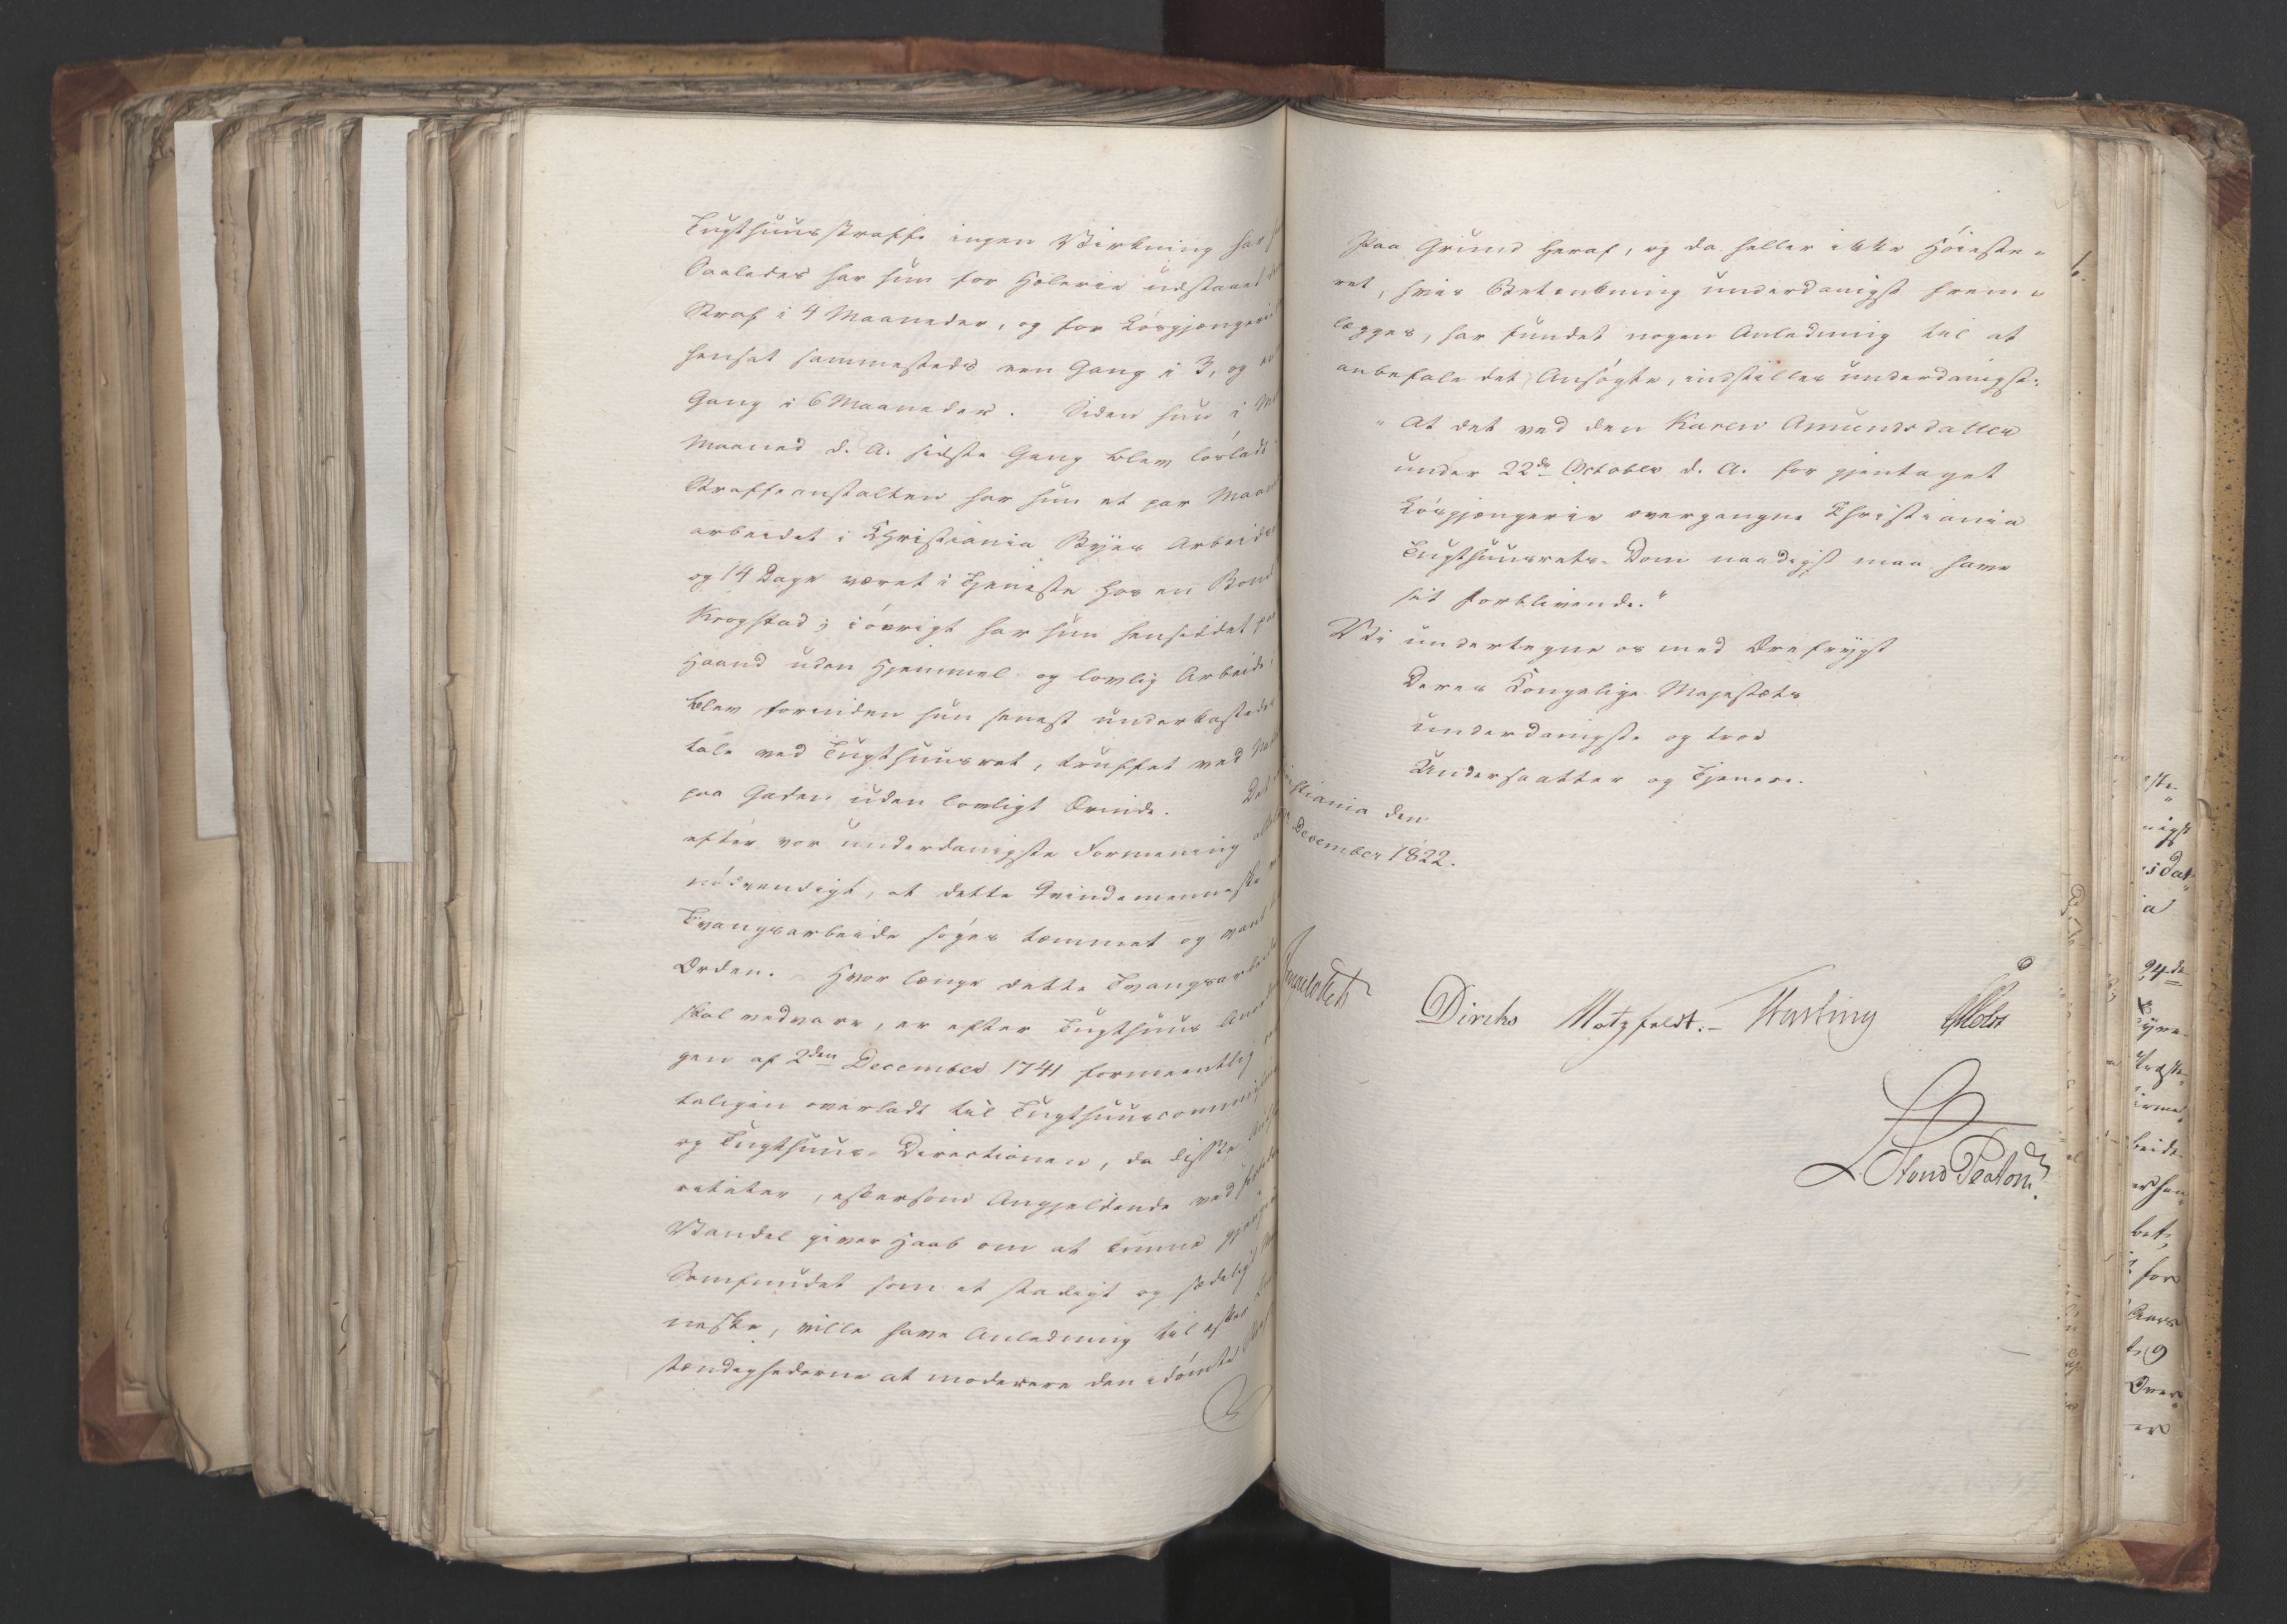 Tugthuusstraffe ingen Virkning har
Saaledes har hun for Hælerie udstaaet
Straf i 4 Maaneder, og for Løsgjængerie
hensat sammesteds een Gang i 3, og en
Gang i 6 Maaneder. Siden hun i
Maaned d. A. sidste Gang blev løsladt
Straffeanstalten har hun et par Maan
arbeidet i Christiania Byes Arbeids
og 14 Dage været i Tjeneste hos en Bond
Krogstad; iøvrigt har hun hensiddet paa
Haand uden Hjemmel og lovlig Arbeide,
blev forinden hun senest underkastedes
tale ved Tugthuusret, truffet ved
paa Gaden uden lovligt Ærinde. Det
efter vor underdanigste Formening
nødvendigt, at dette Qvindemenneske
Tvangsarbeide søges tæmmet og vant
Orden. – Hvor længe dette Tvangsarbeide
skal vedvare, er efter Tugthuus
gen af 2den December 1741 formeentlig
teligen overladt til Tugthuuscommis
og Tugthuus-Directionen, da disse
reteter, eftersom Angjeldende ved
Vandel giver Haab om at kunne
Samfundet som et stadigt og sædeligt
neske, ville have Anledning til efter
stændighederne at moderere den idømte
Paa Grund heraf, og da heller ikke Høieste-
ret, hvis Betænkning underdanigst frem-
lægges, har fundet nogen Anledning til at
anbefale det Ansøgte, indstilles underdanigst:
"At det ved den Karen Amundsdatter
under 22de October d. A. for gjentaget
Løsgjængerie overgangne Christiania
Tugthuusrets-Dom naadigst maa have
sit Forblivende."
Vi undertegne os med Ærefrygt
Deres Kongelige Majestæts
underdanigste og troe
Undersaatter og Tjenere.
istiania den
December 1822.
Diriks Motzfeldt. – Fasting Holst